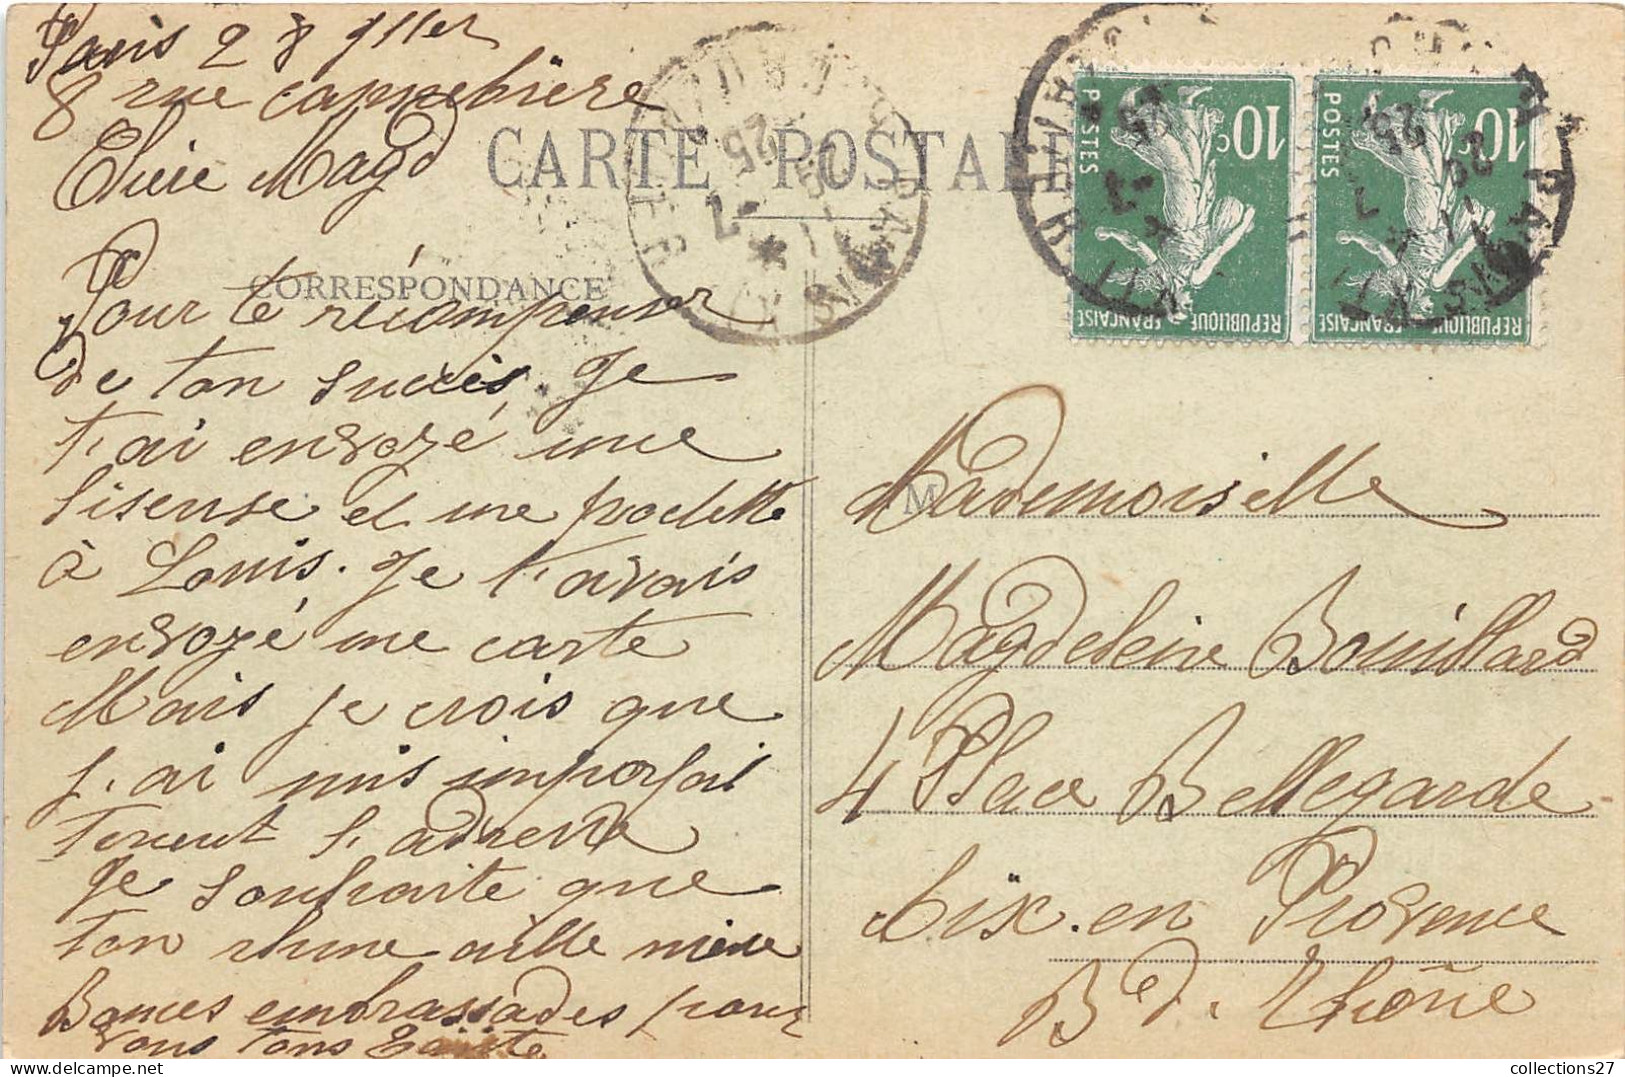 Paris 28 9bre
8 rue cannebière
Chère Magd
CARTE POSTALE
CORRESPONDANCE
Pour te récompenser
de ton succès, Je
t'ai envoyé une
liseuse et une pochette
à Louis. Je t'avais
envoyé une carte
Mais je crois que
j'ai mis imparfai
tement l'adresse
Je souhaite que
ton rhume aille mieux
Bonnes embrassades pour
vous tous
10c
POSTES
REPUBLIQUE FRANÇAISE
10c
POSTES
REPUBLIQUE FRANÇAISE
PARIS XVI
25
M
Mademoiselle
Magdeleine Bouillard
4 Place Bellegarde
Aix-en Provence
B d. Rhône
collections27